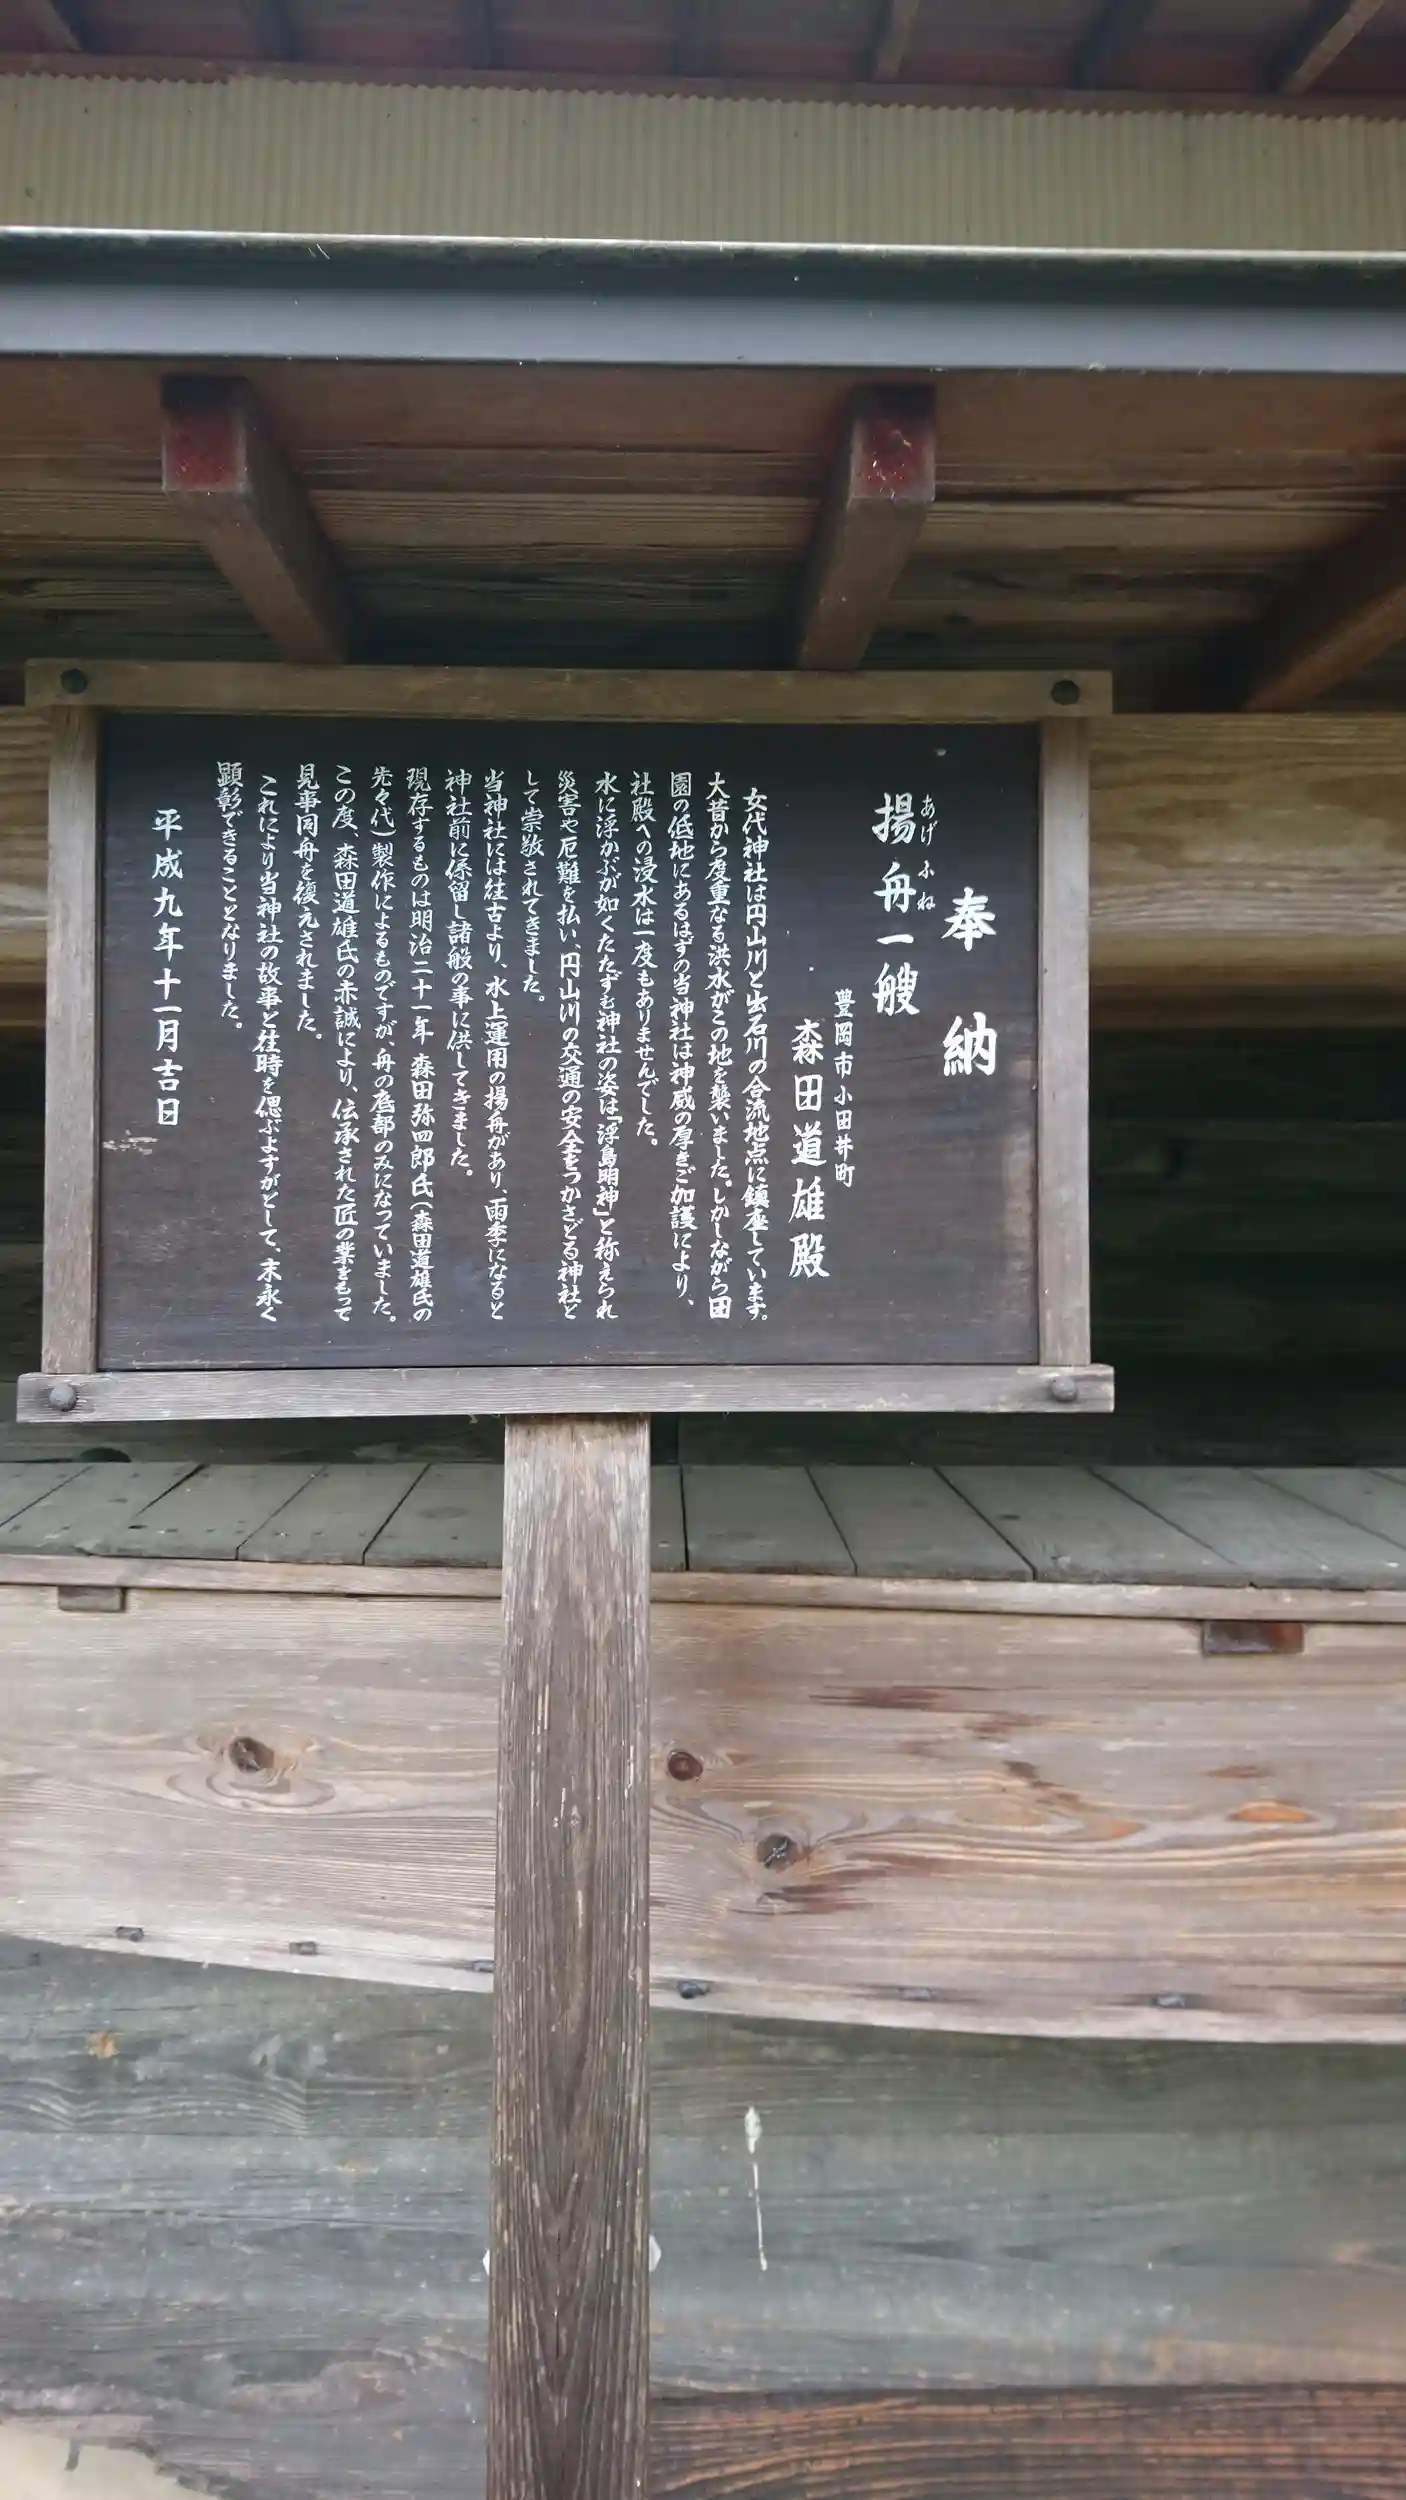 奉納
揚舟一艘
あげふね
豊岡市小田井町
森田道雄殿
女代神社は円山川と出石川の合流地点に鎮座しています。
大昔から度重なる洪水がこの地を襲いました。しかしながら田
園の低地にあるはずの当神社は神威の厚きご加護により、
社殿への浸水は一度もありませんでした。
水に浮かぶが如くたたずむ神社の姿は「浮島明神」と称えられ
災害や厄難を払い、円山川の交通の安全をつかさどる神社と
して崇敬されてきました。
当神社には往古より、水上運用の揚舟があり、雨季になると
神社前に係留し諸般の事に供してきました。
現存するものは明治二十一年 森田弥四郎氏(森田道雄氏の
先々代)製作によるものですが、舟の底部のみになっていました。
この度、森田道雄氏の赤誠により、伝承された匠の業をもって
見事同舟を復元されました。
これにより当神社の故事と往時を偲ぶよすがとして、末永く
顕彰できることとなりました。
平成九年十一月吉日